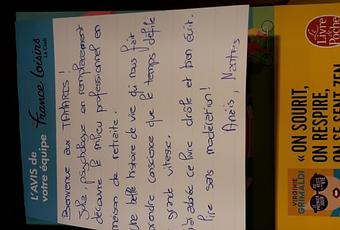 L'AVIS de
votre équipe
France Loisirs
Bienvenue aux TAMARIS !
Julia psychologue en remplacement
découvre le milieu professionnel en
maison de retraite.
Une belle histoire de vie qui nous fait
prendre conscience que le temps défile
à grande vitesse.
J'ai adoré ce livre drôle et bien écrit.
A lire sans modération !
Anaïs,
Le Livre
de Poche
VIRGINIE
GRIMALDI
« ON SOURIT,
ON RESPIRE,
ON SE SENT